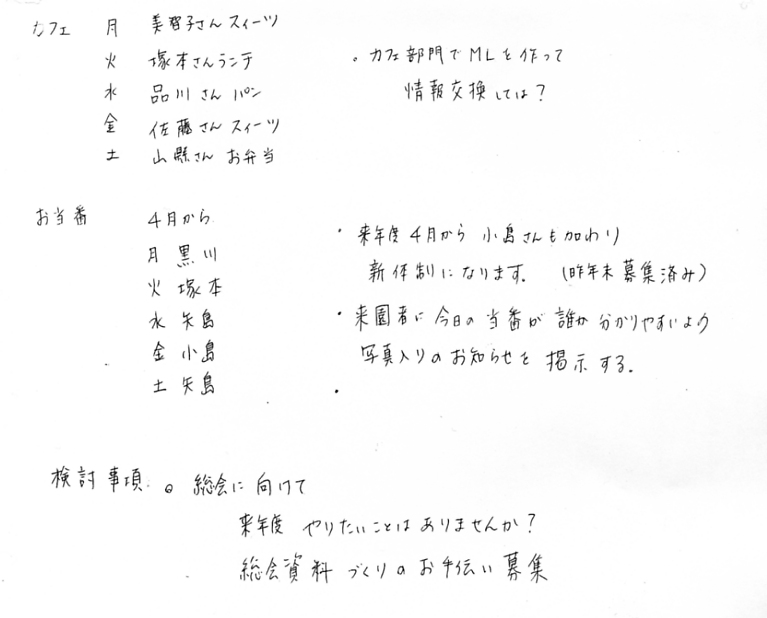 カフェ 月 美智子さん スィーツ
火 塚本さんランチ
水 品川さん パン
金 佐藤さん スィーツ
土 山縣さん お弁当
・カフェ部門でMLを作って
情報交換しては?
お当番 4月から
月 黒川
火 塚本
水 矢島
金 小島
土 矢島
・来年度4月から 小島さんも加わり
新体制になります。 (昨年末募集済み)
・来園者に今日の当番が誰か分かりやすいよう
写真入りのお知らせを掲示する。
・
検討事項 。総会に向けて
来年度 やりたいことはありませんか?
総会資料 づくりのお手伝い募集